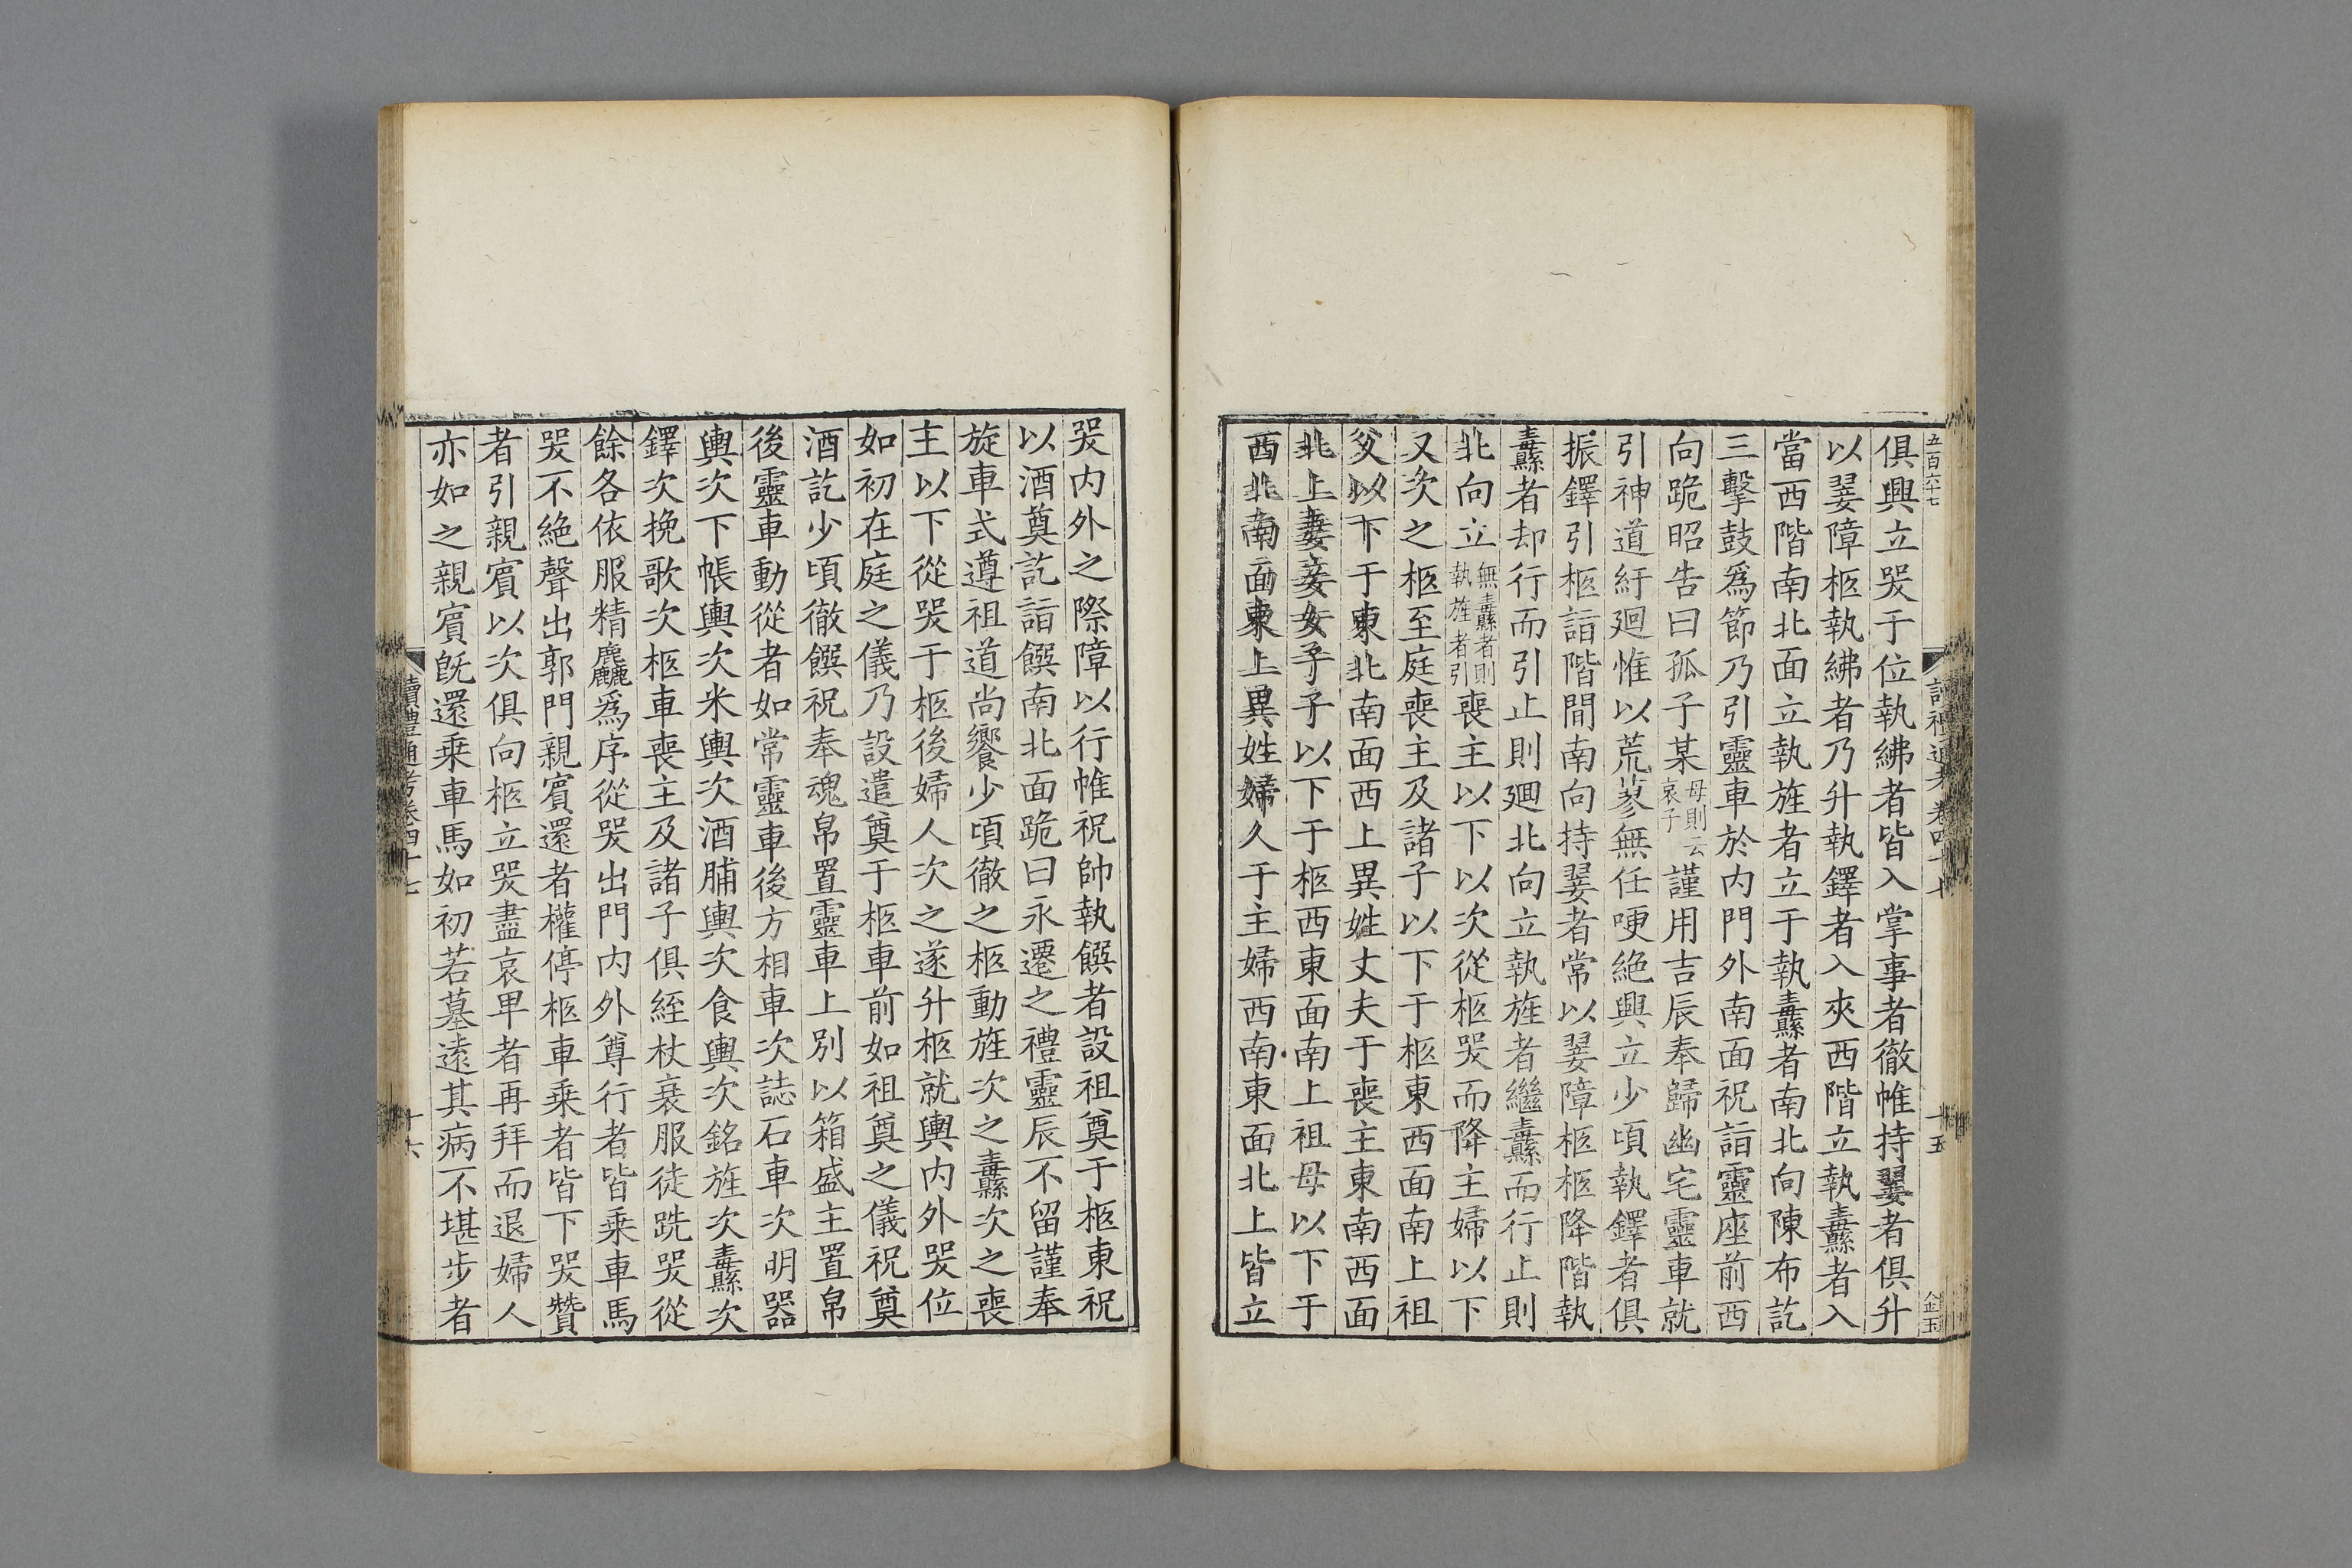 五百六十七
讀禮通考卷四十七
十五
金玉
俱興立哭于位執紼者皆入掌事者徹帷持翣者俱升
以翣障柩執紼者乃升執鐸者入夾西階立執纛者入
當西階南北面立執旌者立于執纛者南北向陳布訖
三擊鼓爲節乃引靈車於内門外南面祝詣靈座前西
向跪昭告曰孤子某母則云哀子謹用吉辰奉歸幽宅靈車就
引神道紆廻惟以荒蓼無任哽絶興立少頃執鐸者俱
振鐸引柩詣階間南向持翣者常以翣障柩柩降階執
纛者却行而引止則廻北向立執旌者繼纛而行止則
北向立無纛者則執旌者引喪主以下以次從柩哭而降主婦以下
又次之柩至庭喪主及諸子以下于柩東西面南上祖
父以下于東北南面西上異姓丈夫于喪主東南西面
北上妻妾女子子以下于柩西東面南上祖母以下于
西北南面東上異姓婦久于主婦西南東面北上皆立
哭内外之際障以行帷祝帥執饌者設祖奠于柩東祝
以酒奠訖詣饌南北面跪曰永遷之禮靈辰不留謹奉
旋車式遵祖道尚饗少頃徹之柩動旌次之纛次之喪
主以下從哭于柩後婦人次之遂升柩就輿内外哭位
如初在庭之儀乃設遣奠于柩車前如祖奠之儀祝奠
酒訖少頃徹饌祝奉魂帛置靈車上別以箱盛主置帛
後靈車動從者如常靈車後方相車次誌石車次明器
輿次下帳輿次米輿次酒脯輿次食輿次銘旌次纛次
鐸次挽歌次柩車喪主及諸子俱絰杖衰服徒跣哭從
餘各依服精麤爲序從哭出門内外尊行者皆乘車馬
哭不絶聲出郭門親賓還者權停柩車乘者皆下哭贊
者引親賓以次俱向柩立哭盡哀卑者再拜而退婦人
亦如之親賓旣還乘車馬如初若墓遠其病不堪步者
讀禮通考卷四十七
十六